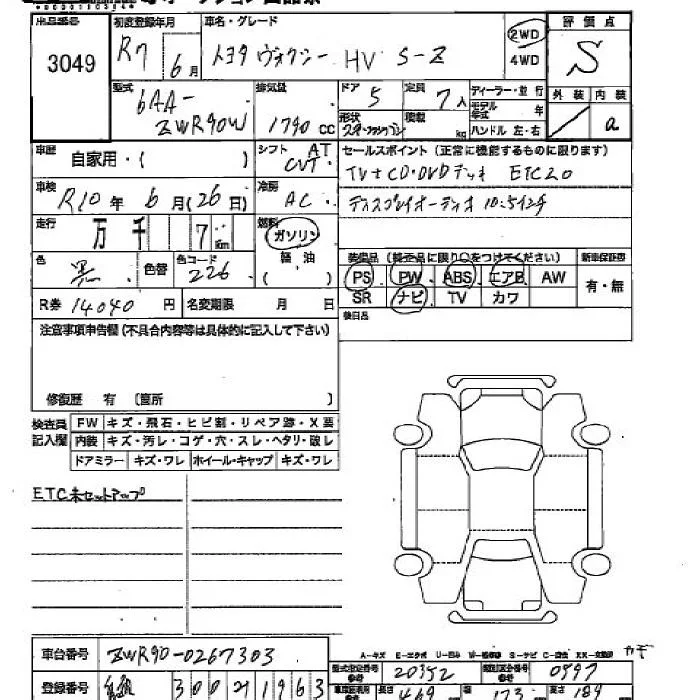 出品番号 初度登録年月 車名・グレード 評価点
3049 R7 6月 トヨタ ヴォクシー HV S-Z 2WD 4WD S
型式 6AA-ZWR90W 排気量 1790 cc ドア 5 定員 7人 ディーラー・並行 外装 内装
形状 積載 kg モデル年式 年 ハンドル 左・右 a
車歴 自家用・( ) シフト AT CVT セールスポイント (正常に機能するものに限ります)
TV+CD・DVDデッキ ETC2.0
車検 R10年 6月(26日) 冷房 AC ディスプレイオーディオ 10.5インチ
走行 万 千 7 km 燃料 ガソリン 軽油 ( )
色 黒 色替 色コード 226
装備品 (装着品に限り○をつけてください) 新車保証書
PS PW ABS エアB AW 有・無
SR ナビ TV カワ
R券 14040 円 名変期限 月 日
後日品
注意事項申告欄 (不具合内容等は具体的に記入して下さい)
修復歴 有 〔箇所 〕
検査員記入欄 FW キズ・飛石・ヒビ割・リペア跡・X要
内装 キズ・汚レ・コゲ・穴・スレ・ヘタリ・破レ
ドアミラー キズ・ワレ ホイール・キャップ キズ・ワレ
ETC未セットアップ
車台番号 ZWR90-0267303
A-キズ E-エクボ U-凹み
型式指定番号 20352 類別区分番号 0597
登録番号 300 ス 1963
長さ 469 幅 173 高さ 189